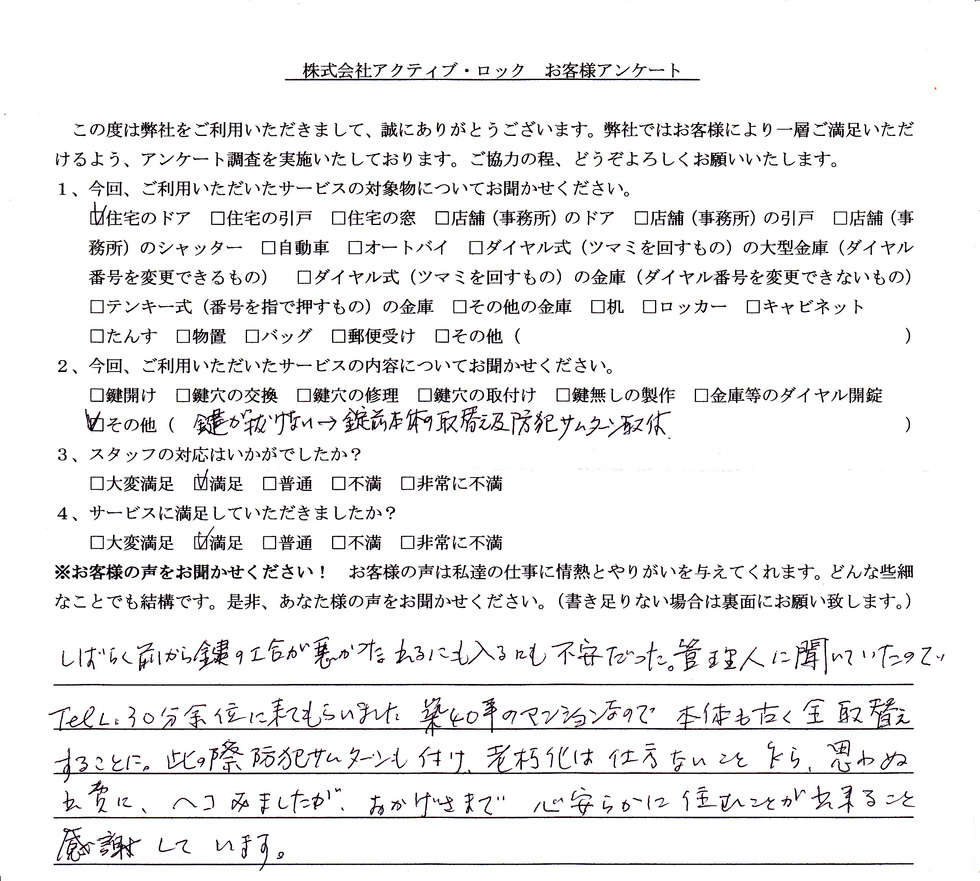 株式会社アクティブ・ロック　お客様アンケート
この度は弊社をご利用いただきまして、誠にありがとうございます。弊社ではお客様により一層ご満足いただ
けるよう、アンケート調査を実施いたしております。ご協力の程、どうぞよろしくお願いいたします。
１、今回、ご利用いただいたサービスの対象物についてお聞かせください。
☑住宅のドア　□住宅の引戸　□住宅の窓　□店舗（事務所）のドア　□店舗（事務所）の引戸　□店舗（事
務所）のシャッター　□自動車　□オートバイ　□ダイヤル式（ツマミを回すもの）の大型金庫（ダイヤル
番号を変更できるもの）　□ダイヤル式（ツマミを回すもの）の金庫（ダイヤル番号を変更できないもの）
□テンキー式（番号を指で押すもの）の金庫　□その他の金庫　□机　□ロッカー　□キャビネット
□たんす　□物置　□バッグ　□郵便受け　□その他（　　　）
２、今回、ご利用いただいたサービスの内容についてお聞かせください。
□鍵開け　□鍵穴の交換　□鍵穴の修理　□鍵穴の取付け　□鍵無しの製作　□金庫等のダイヤル開錠
☑その他（ 鍵が抜けない→錠前本体の取替え及防犯サムターン取 ）
３、スタッフの対応はいかがでしたか？
□大変満足　☑満足　□普通　□不満　□非常に不満
４、サービスに満足していただきましたか？
□大変満足　☑満足　□普通　□不満　□非常に不満
※お客様の声をお聞かせください！　お客様の声は私達の仕事に情熱とやりがいを与えてくれます。どんな些細
なことでも結構です。是非、あなた様の声をお聞かせください。（書き足りない場合は裏面にお願い致します。）
しばらく前から鍵の工合が悪かった 出るにも入るにも不安だった。管理人に聞いていたので
Telし. 30分余位に来てもらいました 築40年のマンションなので 本体も古く全取替え
することに。此の際防犯サムターンも付け、老朽化は仕方ないこと 思わぬ
出費に、ヘコみましたが、おかげさまで 心安らかに住むことが出来ること
感謝しています。